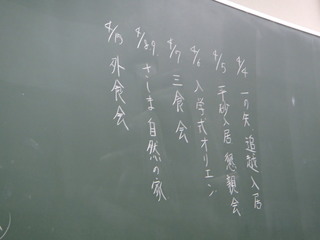 4/4 一の矢 追越入居
4/5 平砂入居 懇親会
4/6 入学式オリエン
4/7 三食会
4/8,9 さしま自然の家
4/19 外食会